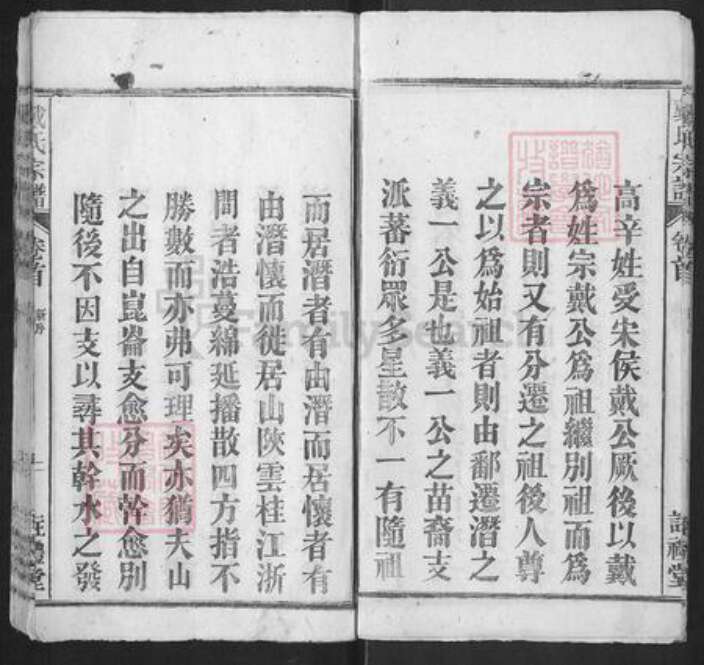 高辛姓受宋侯戴公厥後以戴
為姓宗戴公為祖繼別祖而為
宗者則又有分遷之祖後人尊
之以為始祖者則由鄱遷潛之
義一公是也義一公之苗裔支
派蕃衍眾多星散不一有隨祖
而居潛者有由潛而居懷者有
由潛懷而徙居山陝雲桂江浙
間者浩蔓綿延播散四方指不
勝數而亦弗可理矣亦猶夫山
之出自崑崙支愈分而幹愈別
隨後不因支以尋其幹水之發
戴氏宗譜
卷首
FamilySearch